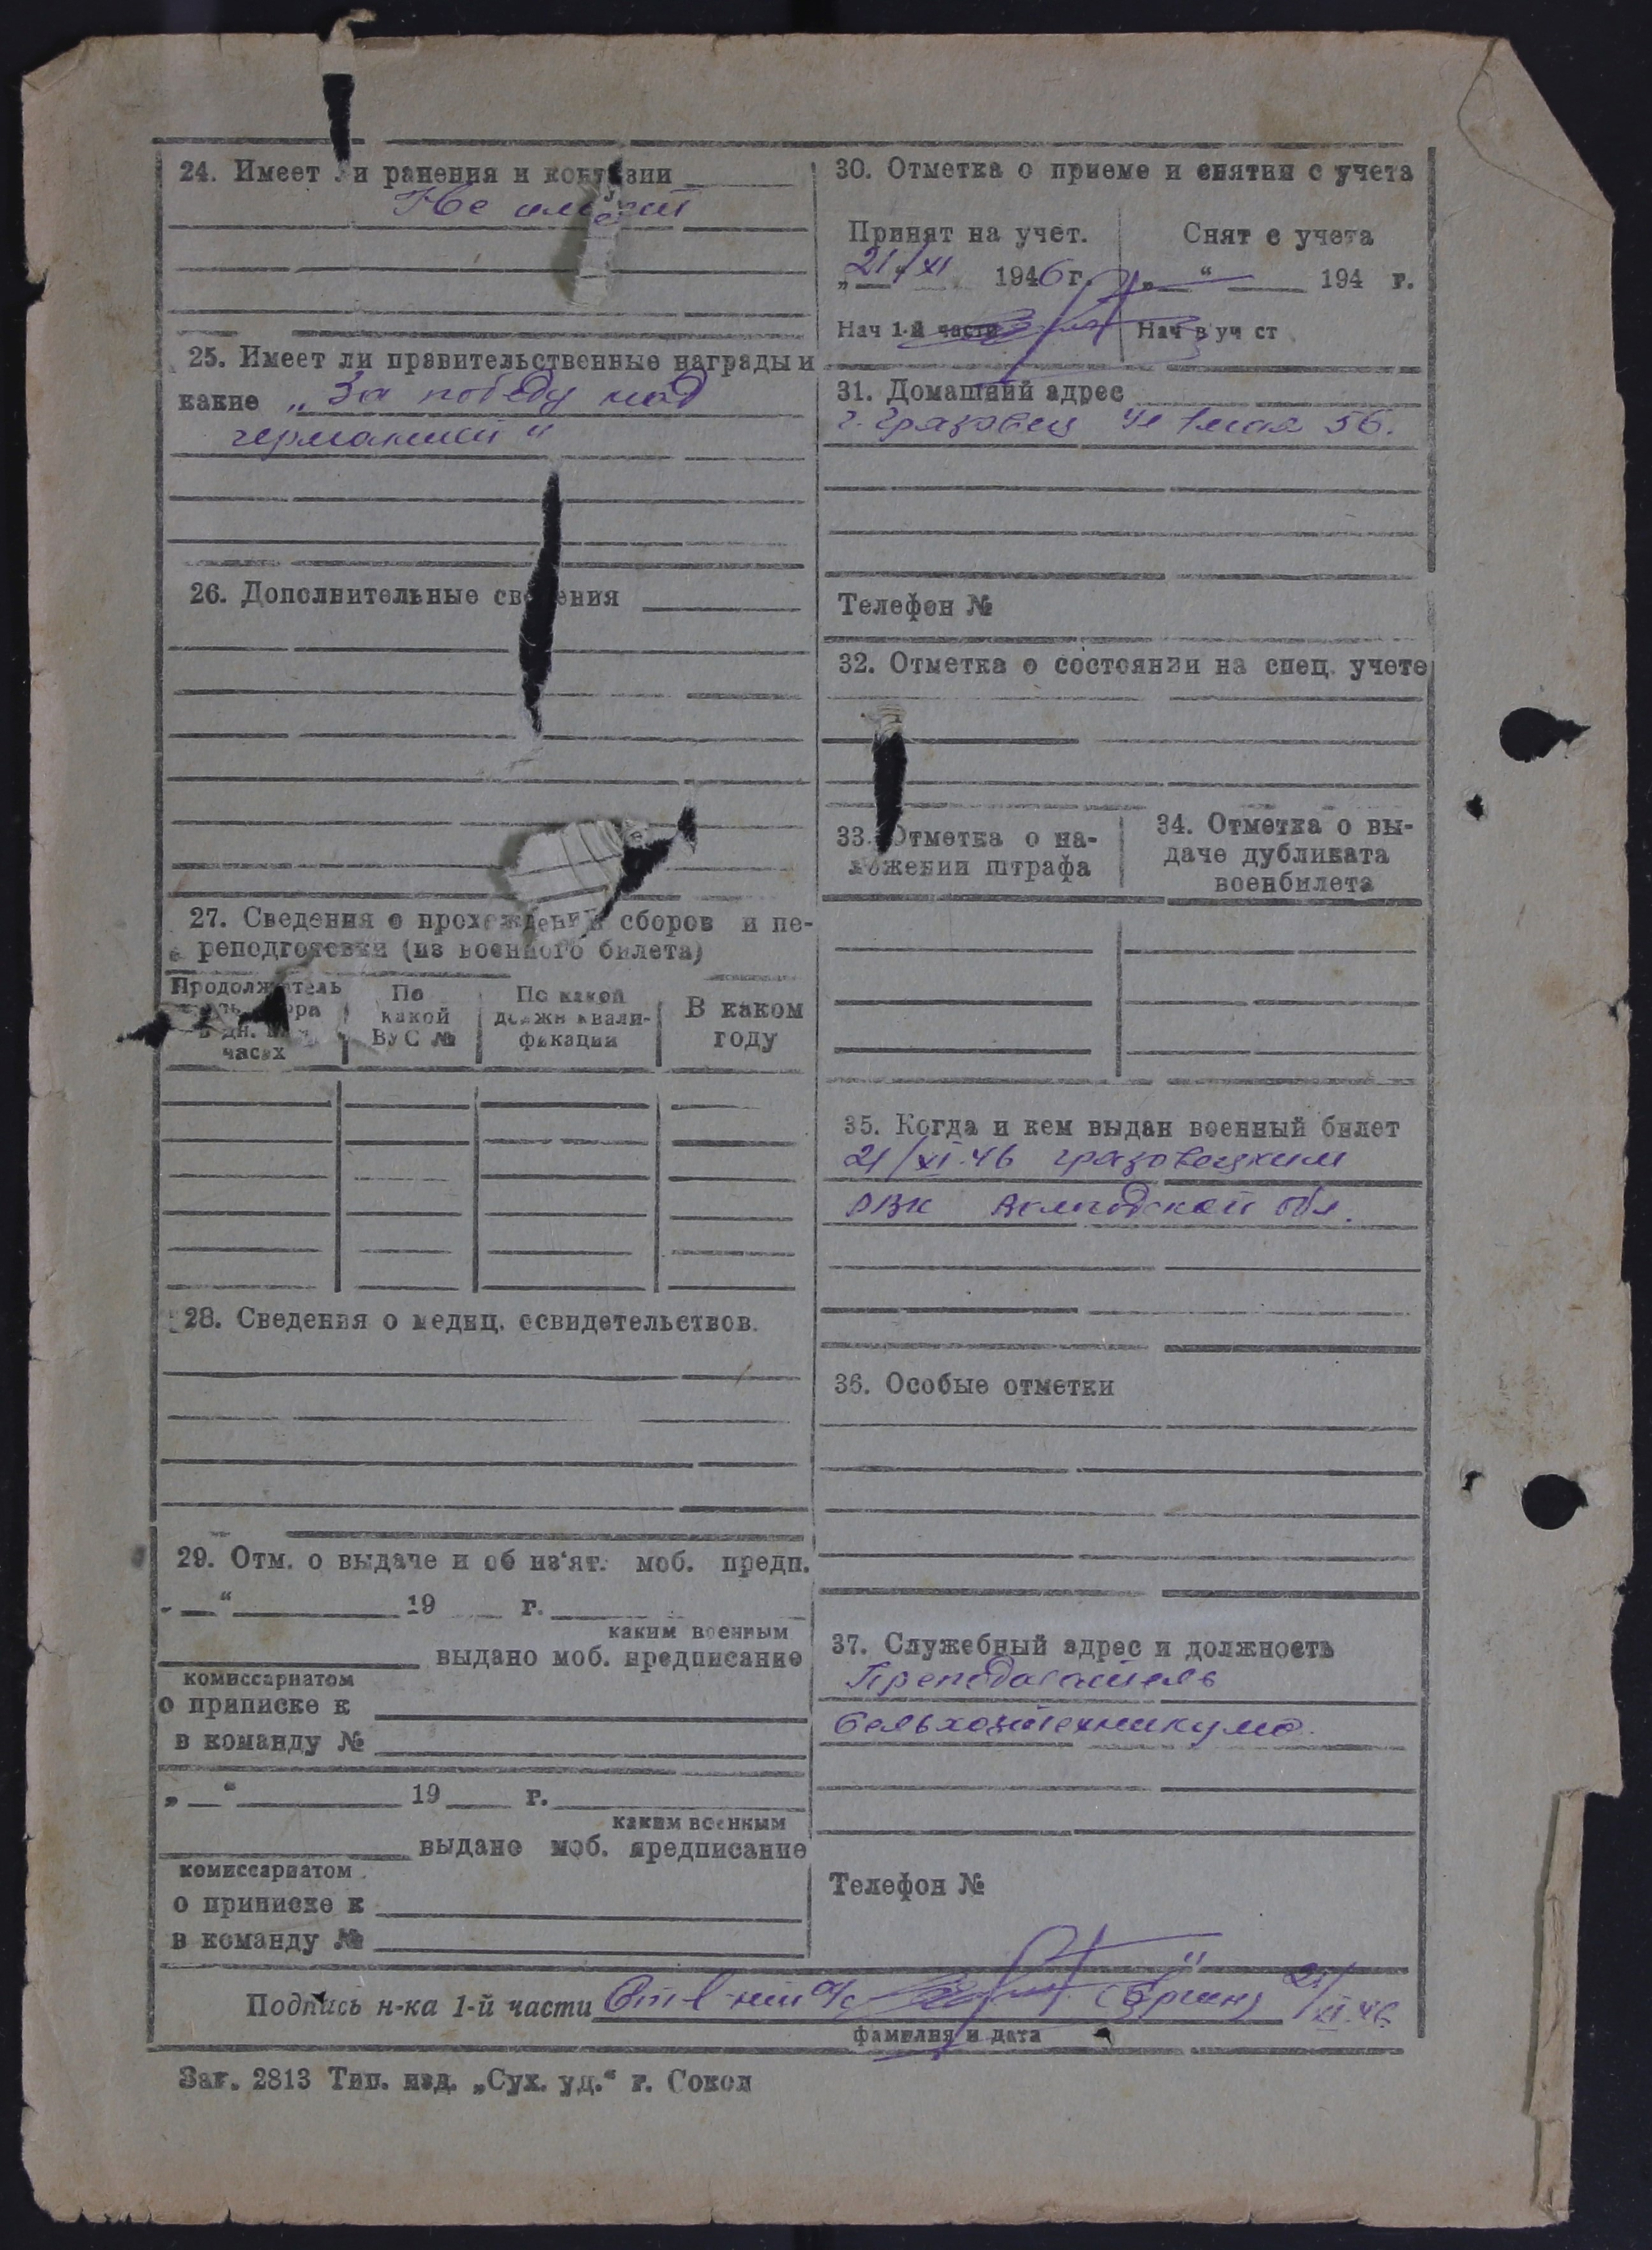 24. Имеет ли ранения и контузии
Не имеет
25. Имеет ли правительственные награды и
какие „За победу над
германией“
26. Дополнительные сведения
27. Сведения о прохождении сборов и пе-
реподготовки (из военного билета)
Продолжитель
в дн. часах
По какой ВУС №
По какой должн квали-фикации
В каком году
28. Сведения о медиц. освидетельствов.
29. Отм. о выдаче и об из'ят. моб. предп.
„ “ 19 г.
каким военным
выдано моб. предписание
комиссариатом
о приписке к
в команду №
„ “ 19 г.
каким военным
выдано моб. предписание
комиссариатом
о приписке к
в команду №
30. Отметка о приеме и снятии с учета
Принят на учет. Снят с учета
„21“ XI 1946 г. „ “ 194 г.
Нач 1-й части Нач в уч ст
31. Домашний адрес
г. Грязовец ул 1 мая 56.
Телефон №
32. Отметка о состоянии на спец. учете
33. Отметка о на-
ложении штрафа
34. Отметка о вы-
даче дубликата
военбилета
35. Когда и кем выдан военный билет
21/XI.46 грязовецким
РВК Вологодской обл.
36. Особые отметки
37. Служебный адрес и должность
Преподаватель
сельхозтехникума.
Телефон №
Подпись н-ка 1-й части 21/XI.46.
фамилия и дата
Зак. 2813 Тип. изд. „Сух. уд.“ г. Сокол